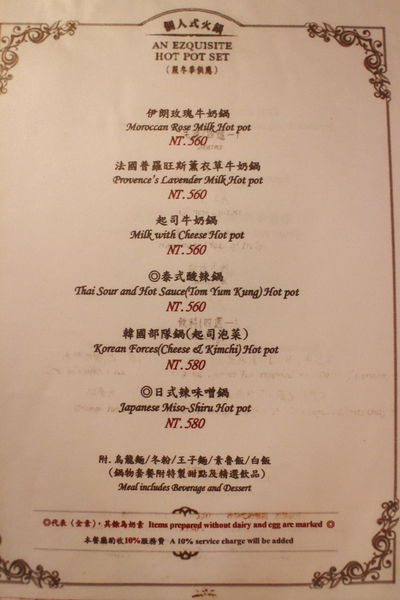 個人式火鍋
AN EZQUISITE
HOT POT SET
(限冬季供應)
伊朗玫瑰牛奶鍋
Moroccan Rose Milk Hot pot
NT.560
法國普羅旺斯薰衣草牛奶鍋
Provence's Lavender Milk Hot pot
NT.560
起司牛奶鍋
Milk with Cheese Hot pot
NT.560
◎泰式酸辣鍋
Thai Sour and Hot Sauce(Tom Yum Kung) Hot pot
NT.560
韓國部隊鍋(起司泡菜)
Korean Forces(Cheese & Kimchi) Hot pot
NT.580
◎日式辣味噌鍋
Japanese Miso-Shiru Hot pot
NT.580
附.烏龍麵/冬粉/王子麵/素魯飯/白飯
(鍋物套餐附特製甜點及精選飲品)
Meal includes Beverage and Dessert
◎代表〈全素〉,其餘為奶素 Items prepared without dairy and egg are marked ◎
本餐廳酌收10%服務費 A 10% service charge will be added